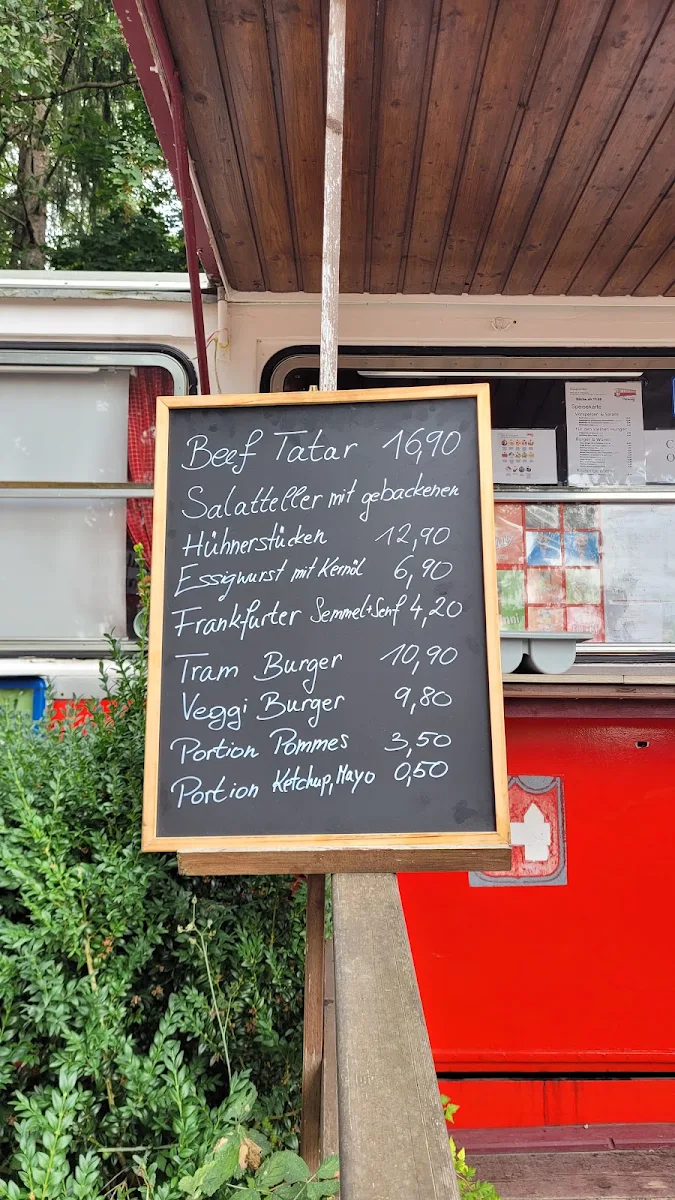 Beef Tatar 16,90
Salatteller mit gebackenen
Hühnerstücken 12,90
Essigwurst mit Kernöl 6,90
Frankfurter Semmel+Senf 4,20
Tram Burger 10,90
Veggi Burger 9,80
Portion Pommes 3,50
Portion Ketchup, Mayo 0,50
Speisekarte